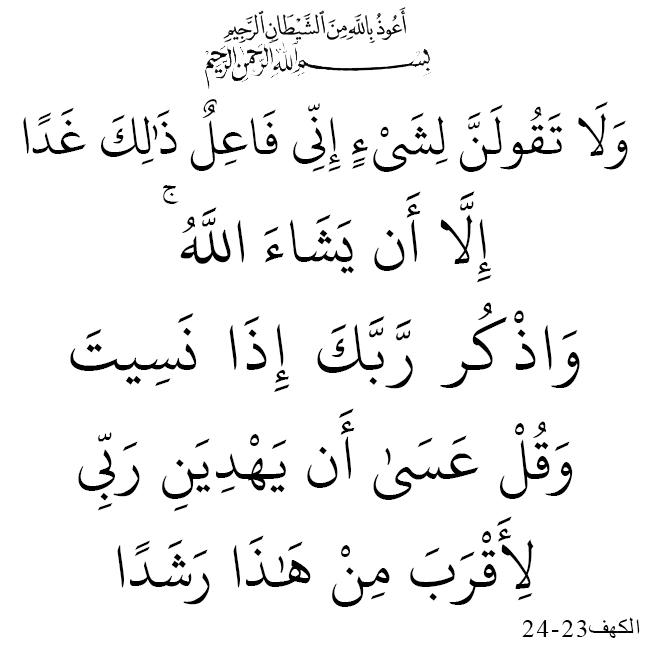 أَعُوذُ بِاللَّهِ مِنَ الشَّيْطَانِ الرَّجِيمِ
بِسْمِ اللَّهِ الرَّحْمَنِ الرَّحِيمِ
وَلَا تَقُولَنَّ لِشَىْءٍ إِنِّى فَاعِلٌ ذَٰلِكَ غَدًا
إِلَّا أَن يَشَاءَ اللَّهُ ۚ
وَاذْكُر رَّبَّكَ إِذَا نَسِيتَ
وَقُلْ عَسَىٰ أَن يَهْدِيَنِ رَبِّى
لِأَقْرَبَ مِنْ هَـٰذَا رَشَدًا
الكهف23-24